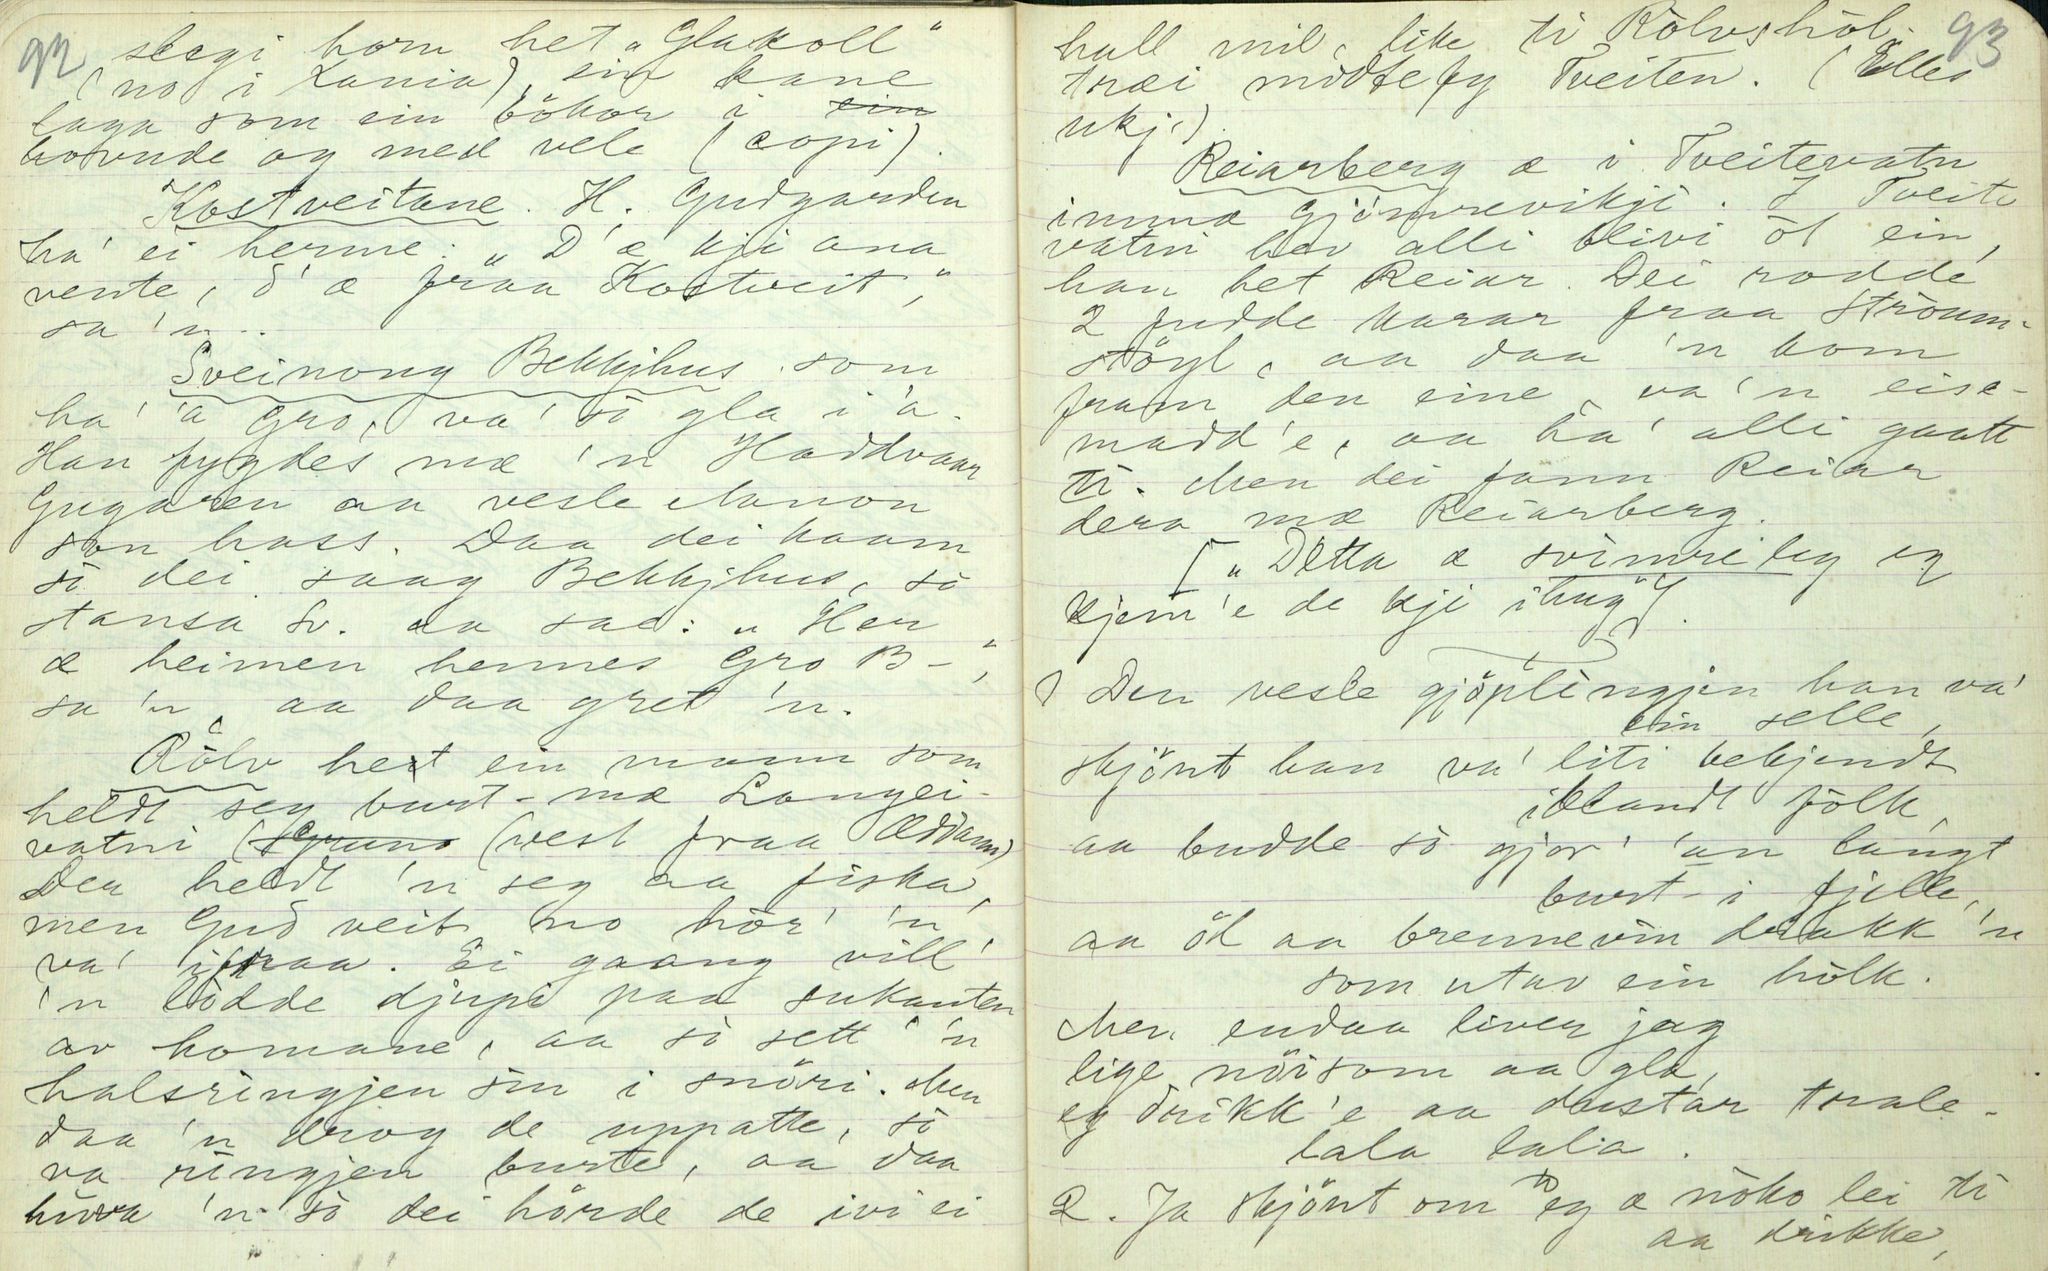 92
slegi horn het "Glakoll"
(no i Kania), ein kane
laga som ein bökor i ein
hovude og med vele (copi).
Kostveitane. H. Gudgarden
ha' ei herme: "D'æ kji ana
vente, d'æ fraa Kostveit,"
sa 'n..
Sveinong Bekkjhus som
ha' 'a Gro, va' so gla i 'a.
Han fygdes mæ 'n Haddvaar
Gugaren aa vesle Aanon
son hass. Daa dei kaam
so dei saag Bekkjhus, so
stansa Sv. aa sae: "Her
æ heimen hennes Gro B-",
sa 'n, aa daa gret 'n.
Rölv het ein mann som
heldt seg burt-mæ Langei-
vatni (Gruns (vest fraa Øddann)
Der heldt 'n seg aa fiska,
men Gud veit no hör' 'n
va' ifraa. Ei gaang vill'
'n lödde djupi paa sukanten
av homane, aa so sett 'n
halsringjen sin i snöri. Men
daa 'n drog de uppatte, so
va ringjen burte, aa daa
huva 'n so dei hörde de ivi ei
93
hall mil, like ti Rölvshöl.
træi midtefy Tveiten. (Elles
ukj.)
Reiarberg æ i Tveitevatn
innmæ Gjömrevikji. I Tveite
vatni hev alli blivi öt ein,
han het Reiar. Dei rodde
2 fudde karar fraa Straum-
stöyl, aa daa 'n kom
fram den eine, va 'n eise-
madd'e, aa ha' alli gaatt
ti. Men dei fann Reiar
dera mæ Reiarberg.
["Detta æ svimreleg eg
kjem'e de kji ihug"].
1 Den vesle gjöplingjen han va'
ein selle,
skjönt han va' liti bekjendt
iblandt folk,
aa budde so gjor' 'an langt
burt-i fjelle,
aa öl aa brennevin drakk 'n
som utav ein hölk.
Men endaa liver jeg
lige nöisom aa gla,
eg drikk'e aa dustar trale-
lala lala.
2. Ja skjönt om eg æ noko lei ti
aa drikke,